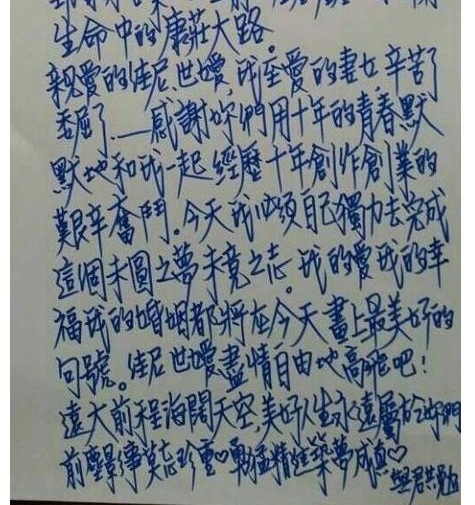 生命中的康莊大路。
親愛的佳尼、世嬡，我至愛的妻女，辛苦了
委屈了。——感謝妳們用十年的青春默
默地和我一起經歷十年創作創業的
艱辛奮鬥。今天我必須自己獨力去完成
這個未圓之夢未竟之志。我的愛我的幸
福我的婚姻都將在今天畫上最美好的
句號。佳尼世嬡盡情自由地高飛吧！
遠大前程海闊天空，美好人生永遠屬於妳們
前塵影事莫忘珍重♡勇猛精進築夢成真♡
與君共勉